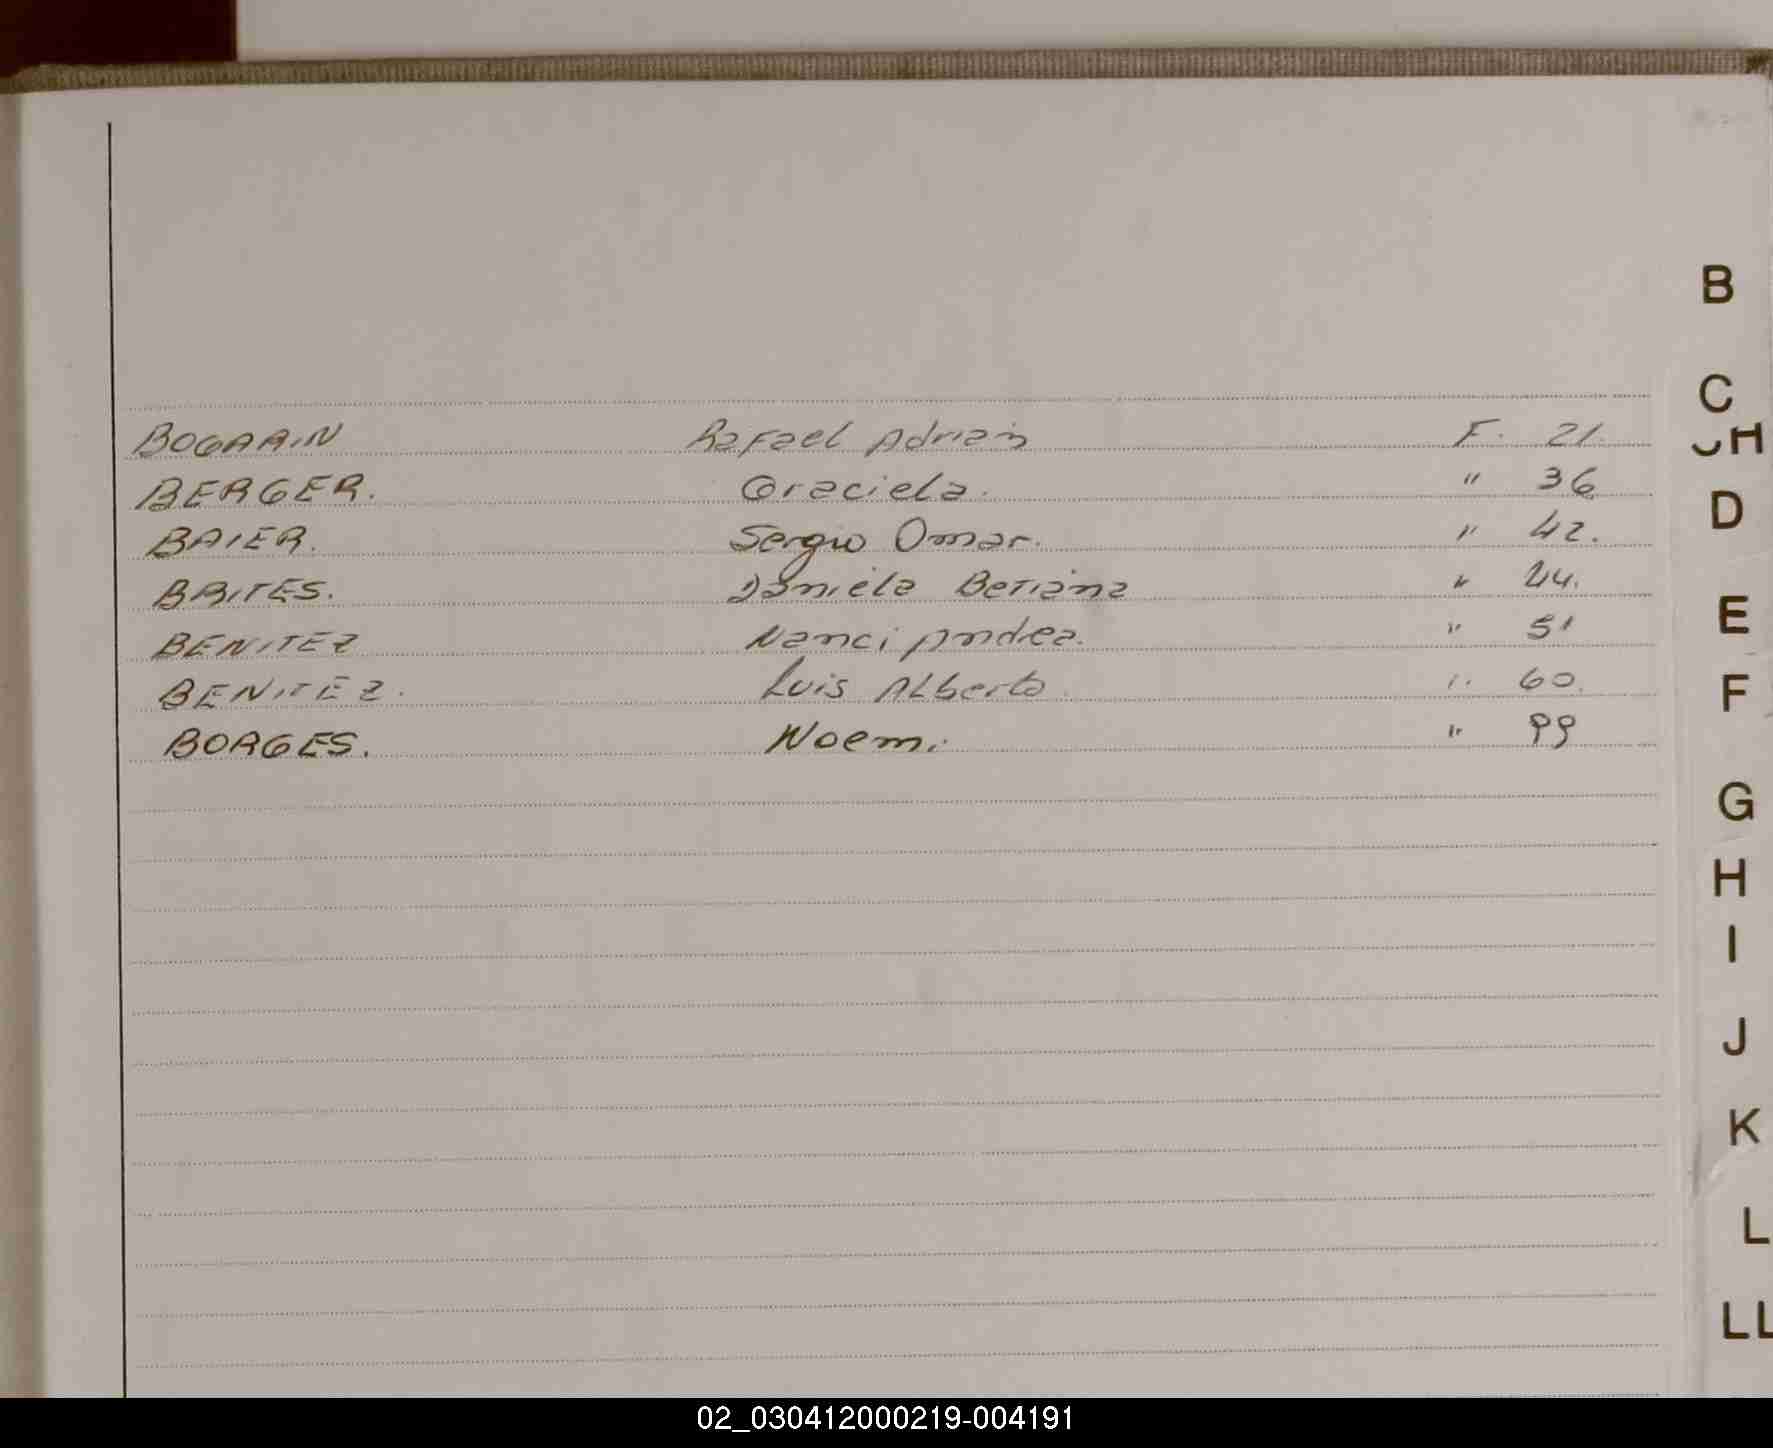 BOGARIN Rafael Adrian F. 21.
BERGER. Graciela. " 36
BAIER. Sergio Omar. " 42.
BRITES. Daniela Betiana " 44.
BENITEZ Nanci Andrea. " 51
BENITEZ. Luis Alberto. " 60.
BORGES. Noemi " 99
B
C
CH
D
E
F
G
H
I
J
K
L
LL
02_030412000219-004191